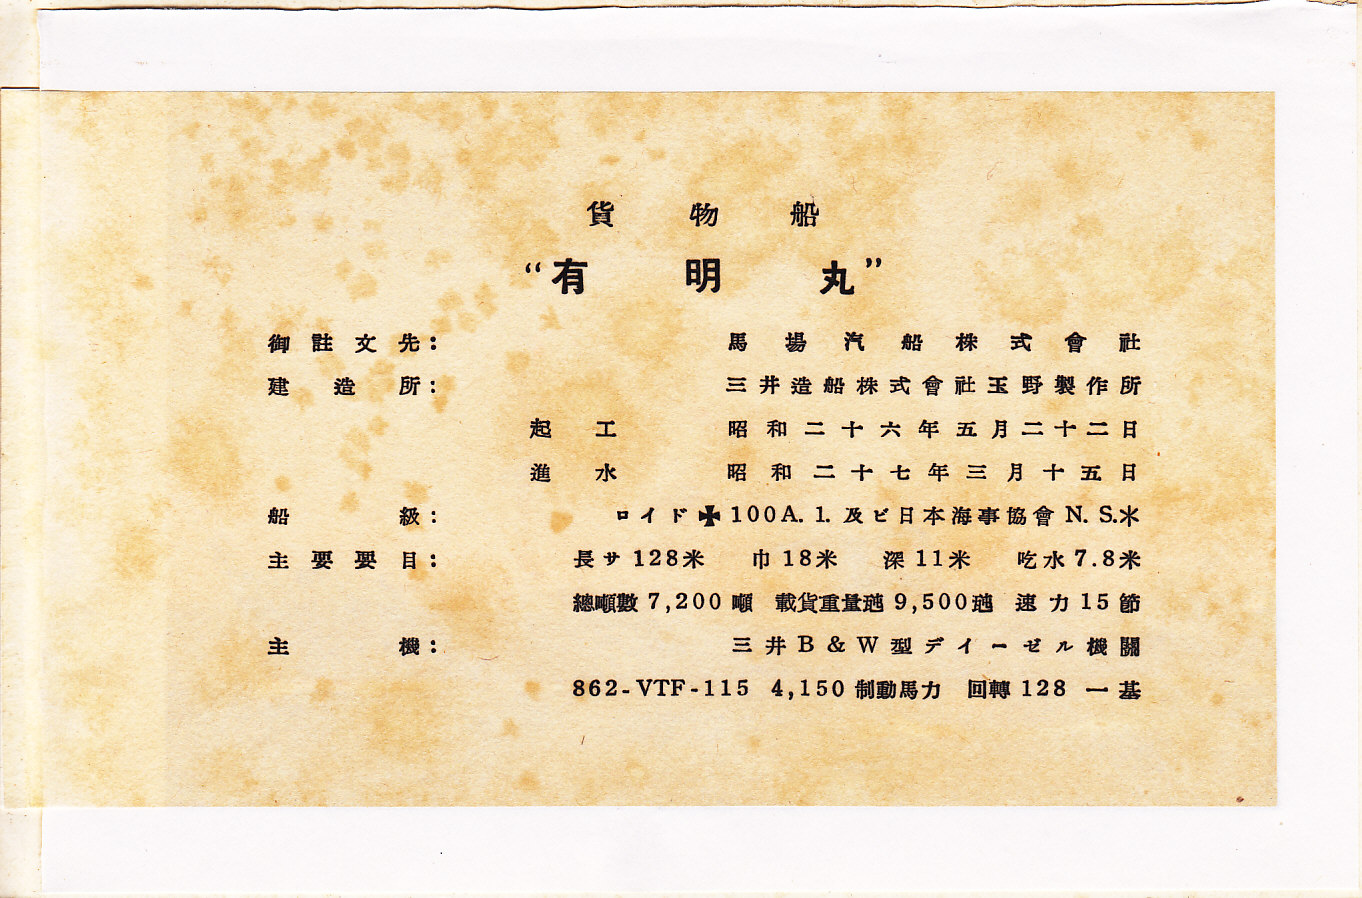 貨物船
“有明丸”
御註文先： 馬場汽船株式會社
建造所： 三井造船株式會社玉野製作所
起工 昭和二十六年五月二十二日
進水 昭和二十七年三月十五日
船級： ロイド✠100A.1.及ビ日本海事協會N.S.米
主要要目： 長サ128米 巾18米 深11米 吃水7.8米
總噸數7,200噸 載貨重量 9,500 速力15節
主機： 三井B&W型デイーゼル機關
862-VTF-115 4,150制動馬力 回轉128 一基